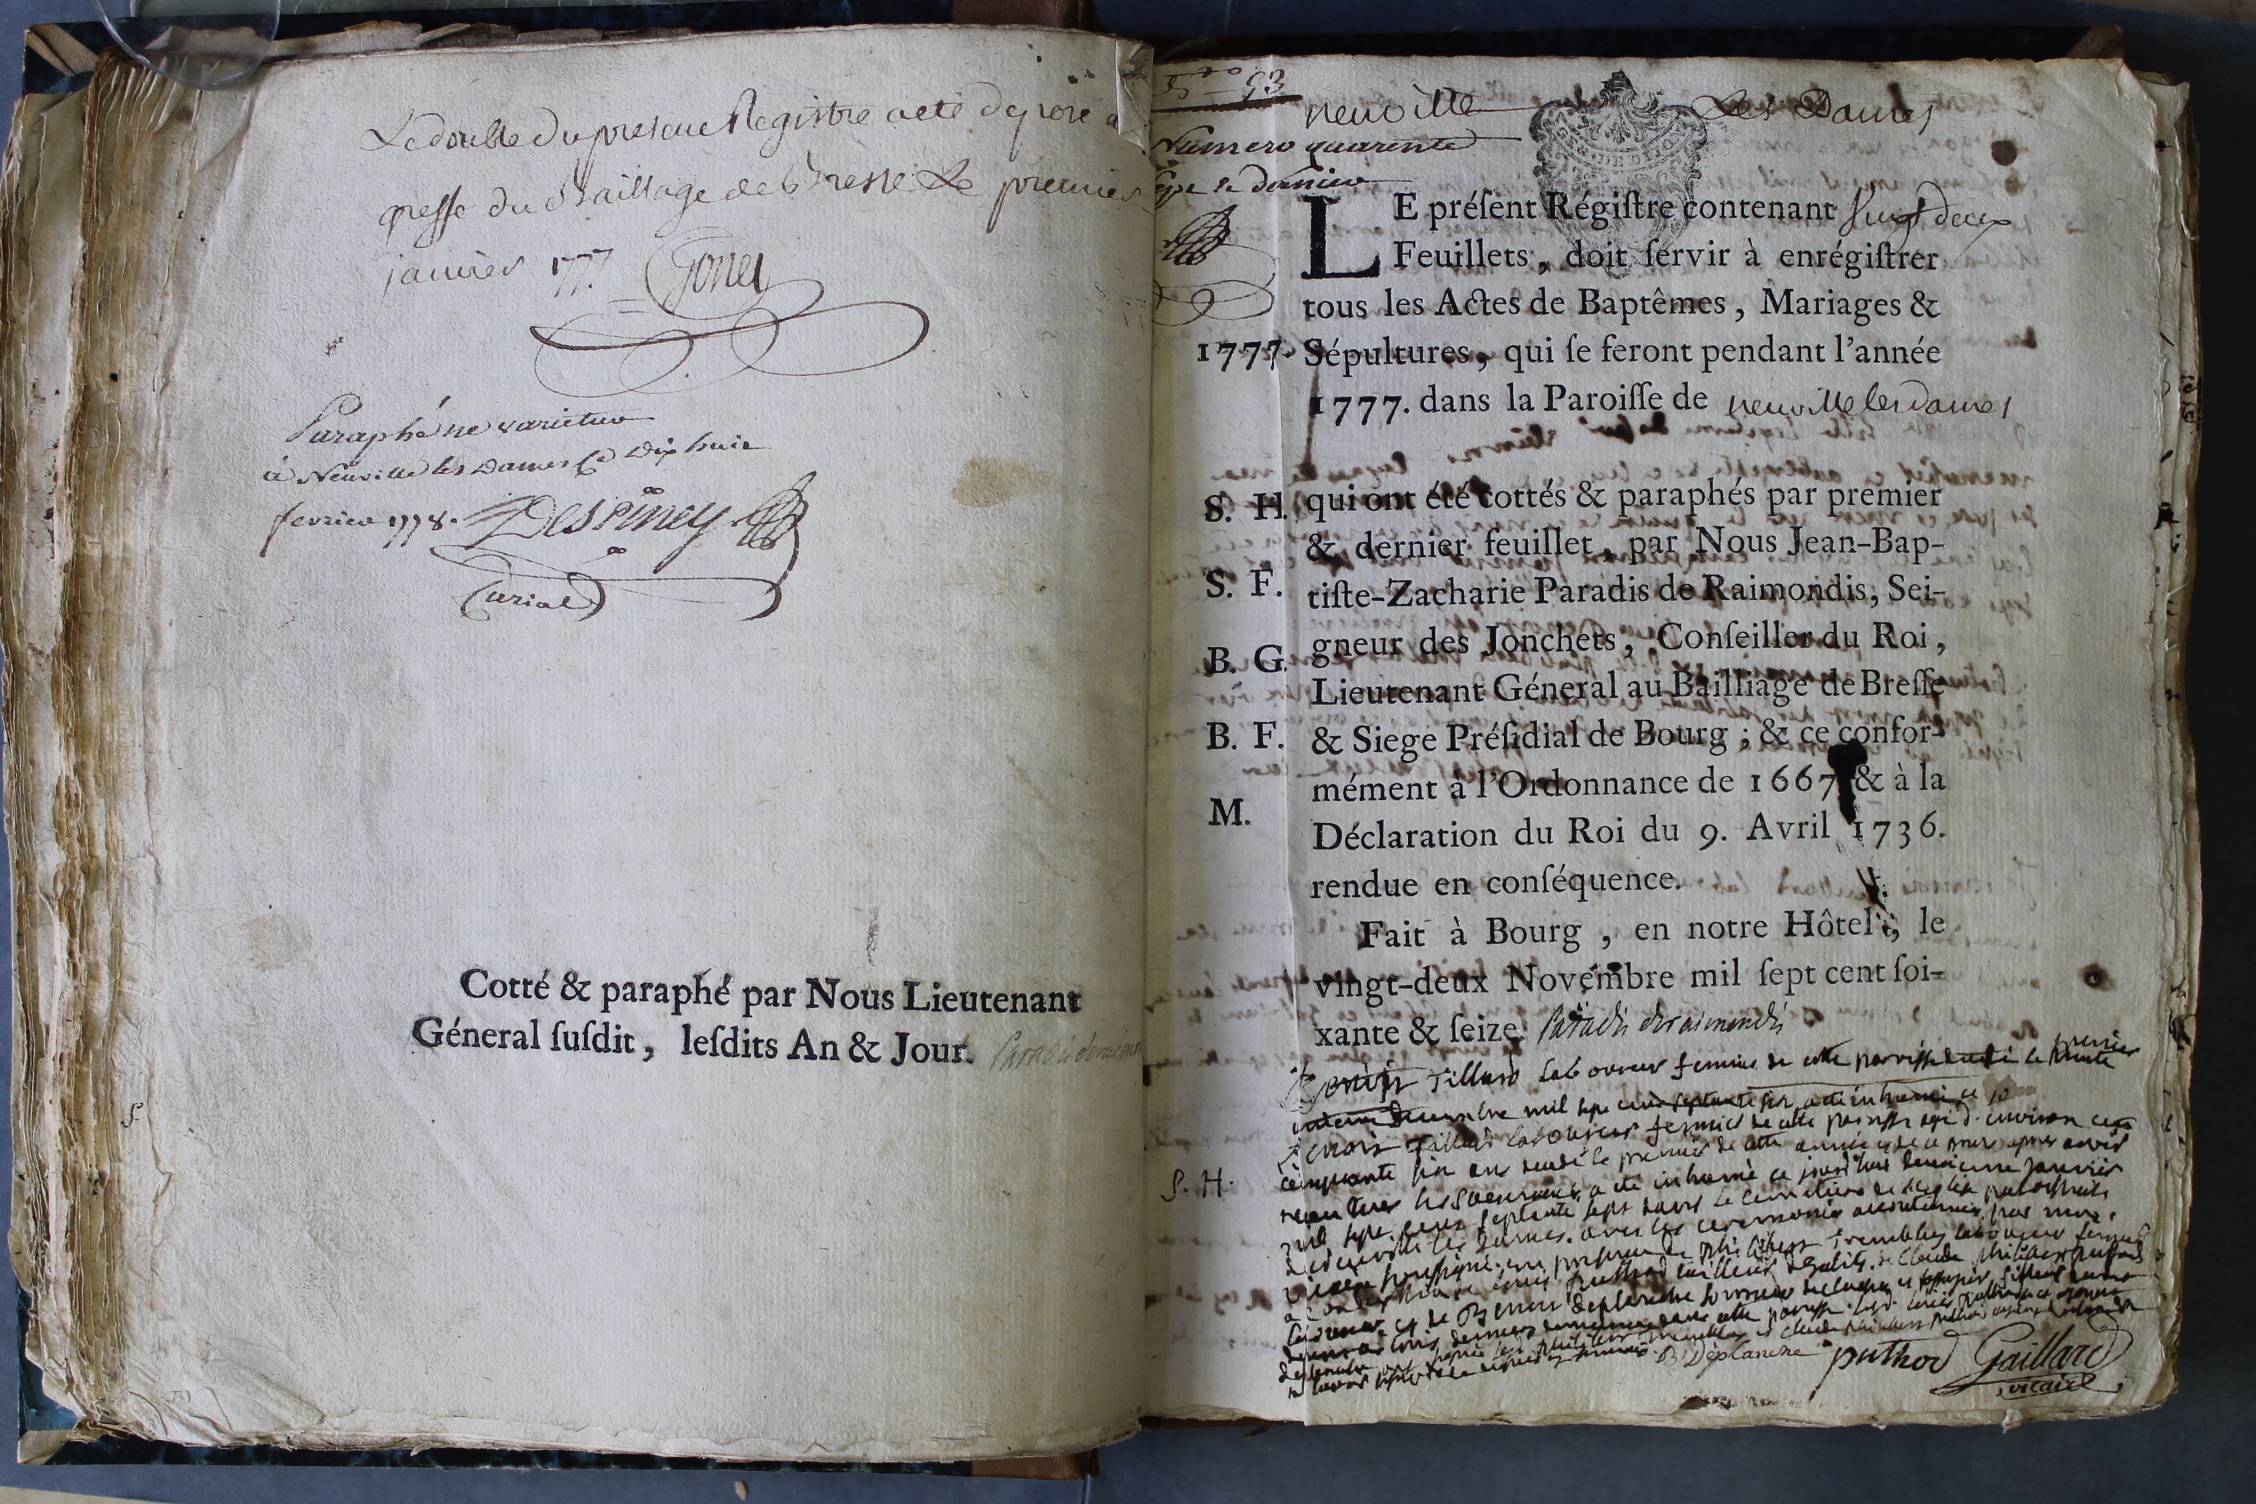 Le double du present Registre a eté deposé a
greffe du Bailliage de Bresse Le premier
janvier 1777. Gonet
Paraphé ne varietur
à Neuville les Dames Ce Dix huit
fevrier 1778. Despiney
Curial
Cotté & paraphé par Nous Lieutenant
Géneral ſuſdit, leſdits An & Jour. Paradis deraimon
93
neuville Les Dames
Numero quarente
sept & dernier
LE préſent Régiſtre contenant vingt deux
Feuillets, doit ſervir à enrégiſtrer
tous les Actes de Baptêmes, Mariages &
1777. Sépultures, qui ſe feront pendant l'année
1777. dans la Paroiſſe de neuville les dames
S. H. qui ont été cottés & paraphés par premier
& dernier feuillet, par Nous Jean-Bap-
S. F. tiſte-Zacharie Paradis de Raimondis, Sei-
B. G. gneur des Jonchets, Conſeiller du Roi,
Lieutenant Géneral au Bailliage de Breſſe
B. F. & Siege Préſidial de Bourg ; & ce confor-
mément à l'Ordonnance de 1667 & à la
M.
Déclaration du Roi du 9. Avril 1736.
rendue en conſéquence.
Fait à Bourg, en notre Hôtel, le
vingt-deux Novembre mil ſept cent ſoi-
xante & ſeize. Paradis deraimondis
premier
Tillard laboureur fermier de cette parroisse le trente
decembre mil sept cent septante six a eté inhumé ce
Tillard laboureur fermier de cette paroisse agé d'environ cen
cinquante six ans decedé le premier de cette année apres avoir
S. H.
a eté inhumé ce jourd'hui deuxieme janvier
mil sept cent septante sept dans le cemetiere de l'eglise paroissiale
de neuville les dames avec les ceremonies accoutumées par moi
vicaire soussigné en presence de philibert laboureur fermier
puthod tailleur d'habits, de Claude philibert puthod
deplanche
B Deplanche puthod Gaillard
vicaire